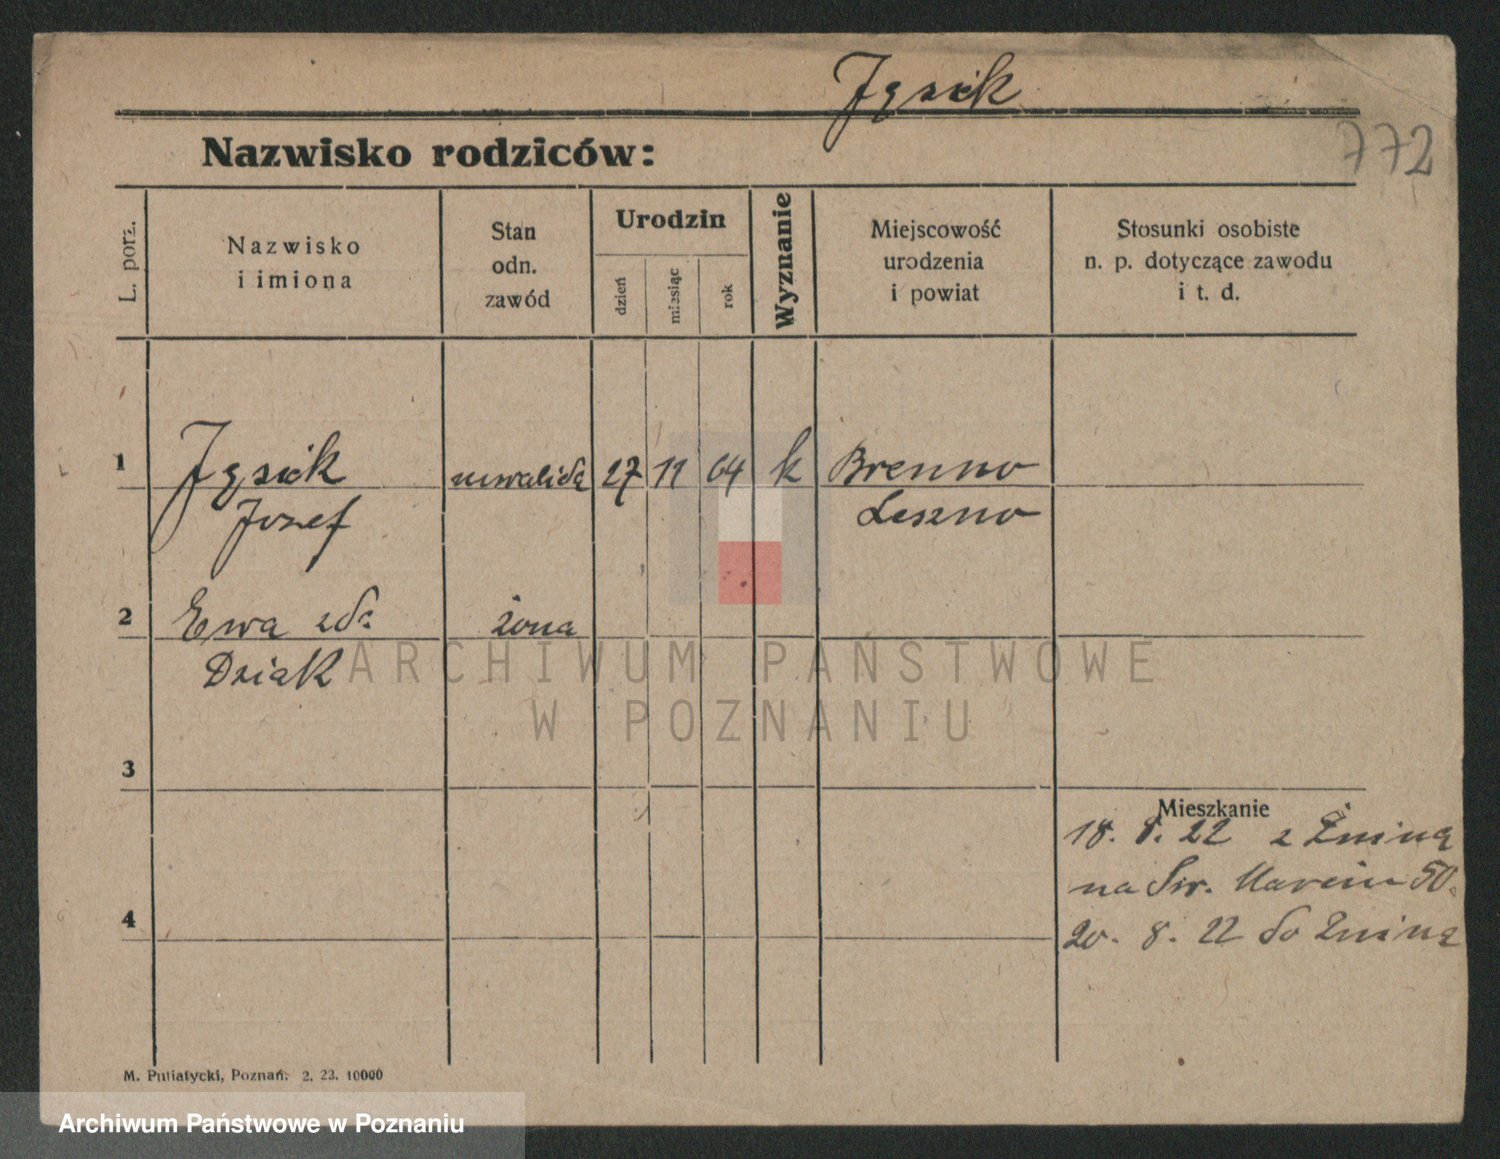 Jęsiek
772
Nazwisko rodziców:
L. porz.
Nazwisko
i imiona
Stan
odn.
zawód
Urodzin
dzień
miesiąc
rok
Wyznanie
Miejscowość
urodzenia
i powiat
Stosunki osobiste
n. p. dotyczące zawodu
i t. d.
1
Jęsiek
Jozef
27
11
64
k
Brenno
Leszno
2
Ewa zd.
Dziak
żona
3
4
Mieszkanie
18. 8. 22 z Żnina
na Św. Marcin 50.
20. 8. 22 do Żnina
M. Putiatycki, Poznań. 2. 23. 10000
ARCHIWUM PAŃSTWOWE
W POZNANIU
Archiwum Państwowe w Poznaniu